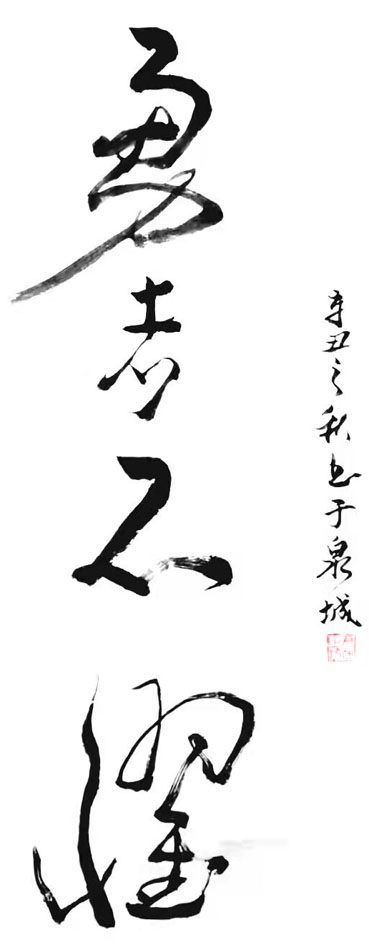 勇者不懼
辛丑之秋书于泉城